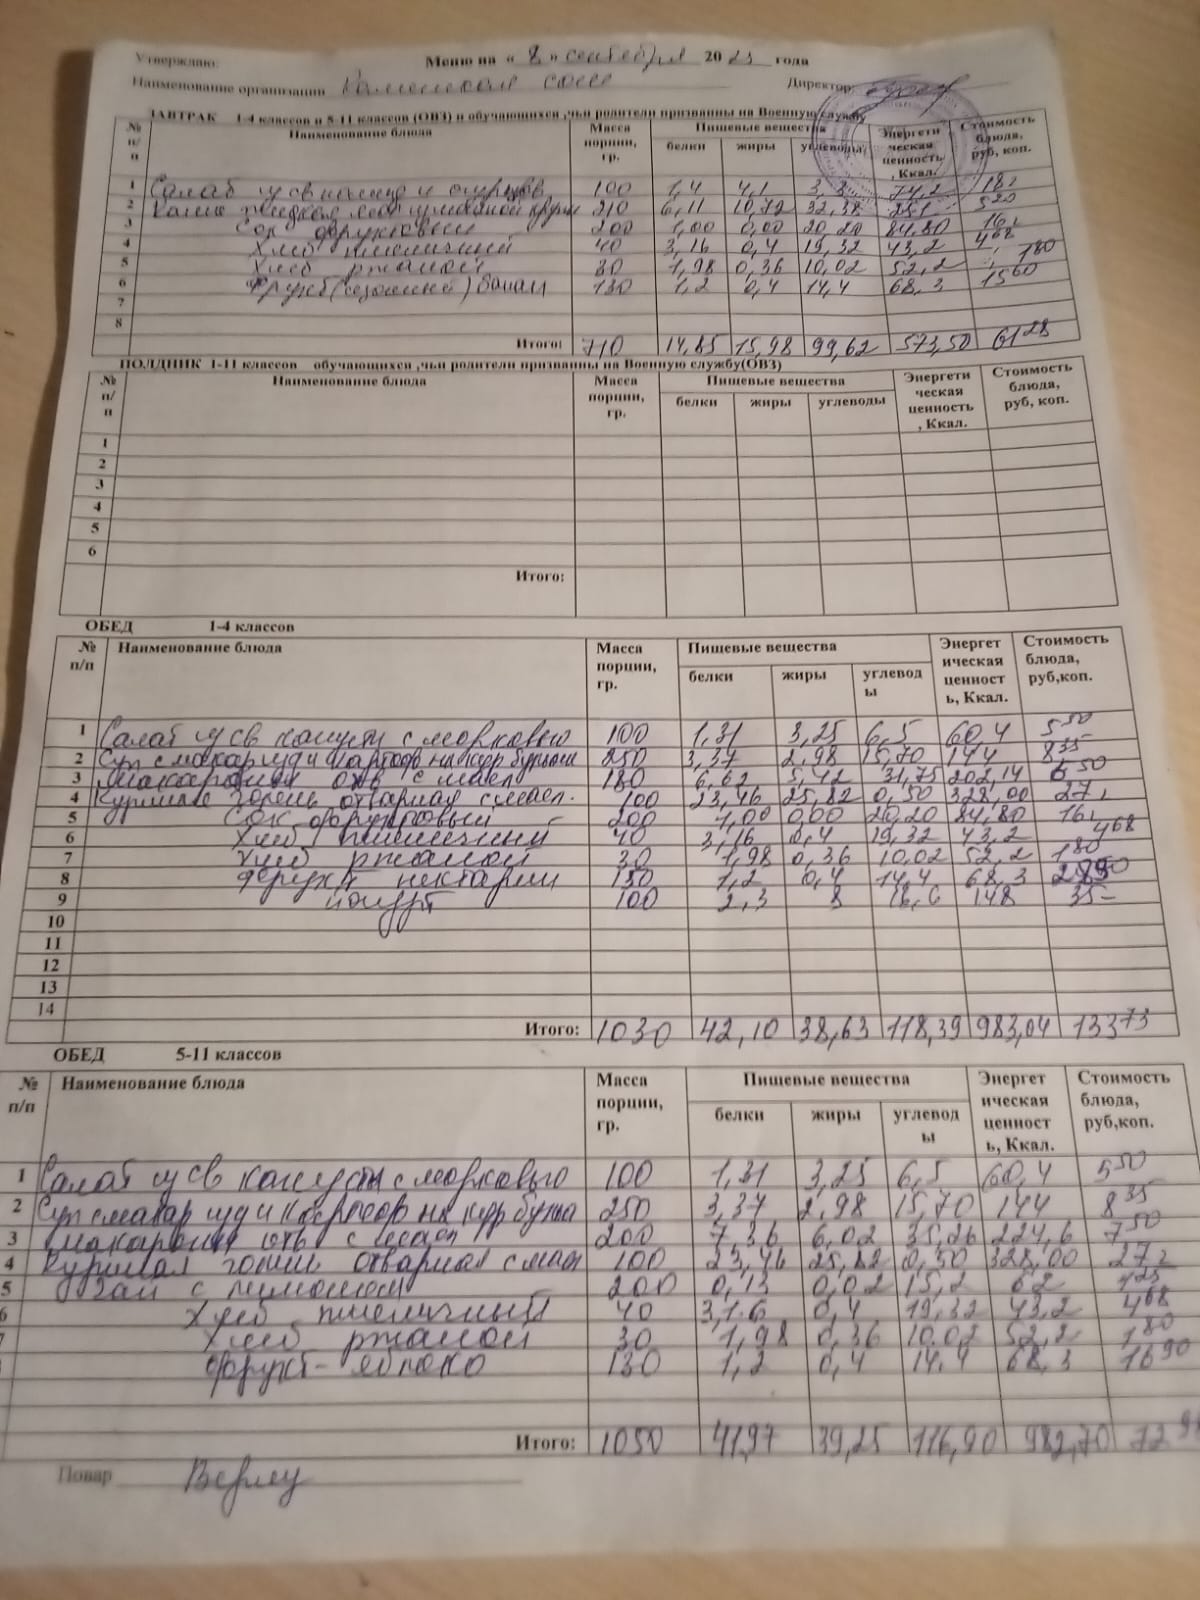 Утверждаю: Меню на « 8 » сентября 2023 года
Наименование организации Каменская сош Директор:
ЗАВТРАК 1-4 классов и 5-11 классов (ОВЗ) и обучающихся ,чьи родители призванны на Военную службу
№ п/п Наименование блюда Масса порции, гр. Пищевые вещества Энергетическая ценность, Ккал. Стоимость блюда, руб, коп.
белки жиры углеводы
1 Салат и огурцов 100 1,4 4,1 74,2 18
2 Каша жидкая крупы 210 6,11 10,72 32,38 251 5 20
3 Сок фруктовый 200 1,00 0,00 20,20 84,80 16
4 Хлеб пшеничный 40 3,16 0,4 19,32 43,2 4 68
5 Хлеб ржаной 30 1,98 0,36 10,02 52,2 1 80
6 Фрукт (сезонный) банан 130 1,2 0,4 14,4 68,3 15 60
7
8
Итого: 710 14,85 15,98 99,62 573,50 61 28
ПОЛДНИК 1-11 классов обучающихся ,чьи родители призванны на Военную службу(ОВЗ)
№ п/п Наименование блюда Масса порции, гр. Пищевые вещества Энергетическая ценность, Ккал. Стоимость блюда, руб, коп.
белки жиры углеводы
1
2
3
4
5
6
Итого:
ОБЕД 1-4 классов
№ п/п Наименование блюда Масса порции, гр. Пищевые вещества Энергетическая ценность, Ккал. Стоимость блюда, руб,коп.
белки жиры углеводы
1 Салат из св капусты с морковью 100 1,31 3,25 6,5 60,4 5 50
2 Суп с макар изд и картоф на кур бульоне 250 3,37 2,98 15,70 144 8 35
3 Макароны отв с масл 180 6,62 5,42 31,75 202,14 6 50
4 Куриная голень отварная с масл. 100 23,46 25,82 0,50 328,00 27
5 Сок фруктовый 200 1,00 0,00 20,20 84,80 16
6 Хлеб пшеничный 40 3,16 0,4 19,32 43,2 4 68
7 Хлеб ржаной 30 1,98 0,36 10,02 52,2 1 80
8 Фрукт нектарин 130 1,2 0,4 14,4 68,3
9 йогурт 100 2,3 8 16,6 148 35-
10
11
12
13
14
Итого: 1030 42,10 38,63 118,39 983,04 133 73
ОБЕД 5-11 классов
№ п/п Наименование блюда Масса порции, гр. Пищевые вещества Энергетическая ценность, Ккал. Стоимость блюда, руб,коп.
белки жиры углеводы
1 Салат из св капусты с морковью 100 1,31 3,25 6,5 60,4 5 50
2 Суп с макар изд и картоф на кур бульо 250 3,37 2,98 15,70 144 8 35
3 Макароны отв с масл 200 7,36 6,02 35,26 224,6 7 50
4 Куриная голень отварная с масл 100 23,46 25,82 0,50 328,00 27
5 Чай с лимоном 200 0,13 0,02 15,2 62 1 25
6 Хлеб пшеничный 40 3,1.6 0,4 19,32 43,2 4 68
Хлеб ржаной 30 1,98 0,36 10.02 52,2 1 80
фрукт - яблоко 130 1,2 0,4 14,4 68,3 16 90
Итого: 1050 41,97 39,25 116,90 982,70 72 98
Повар